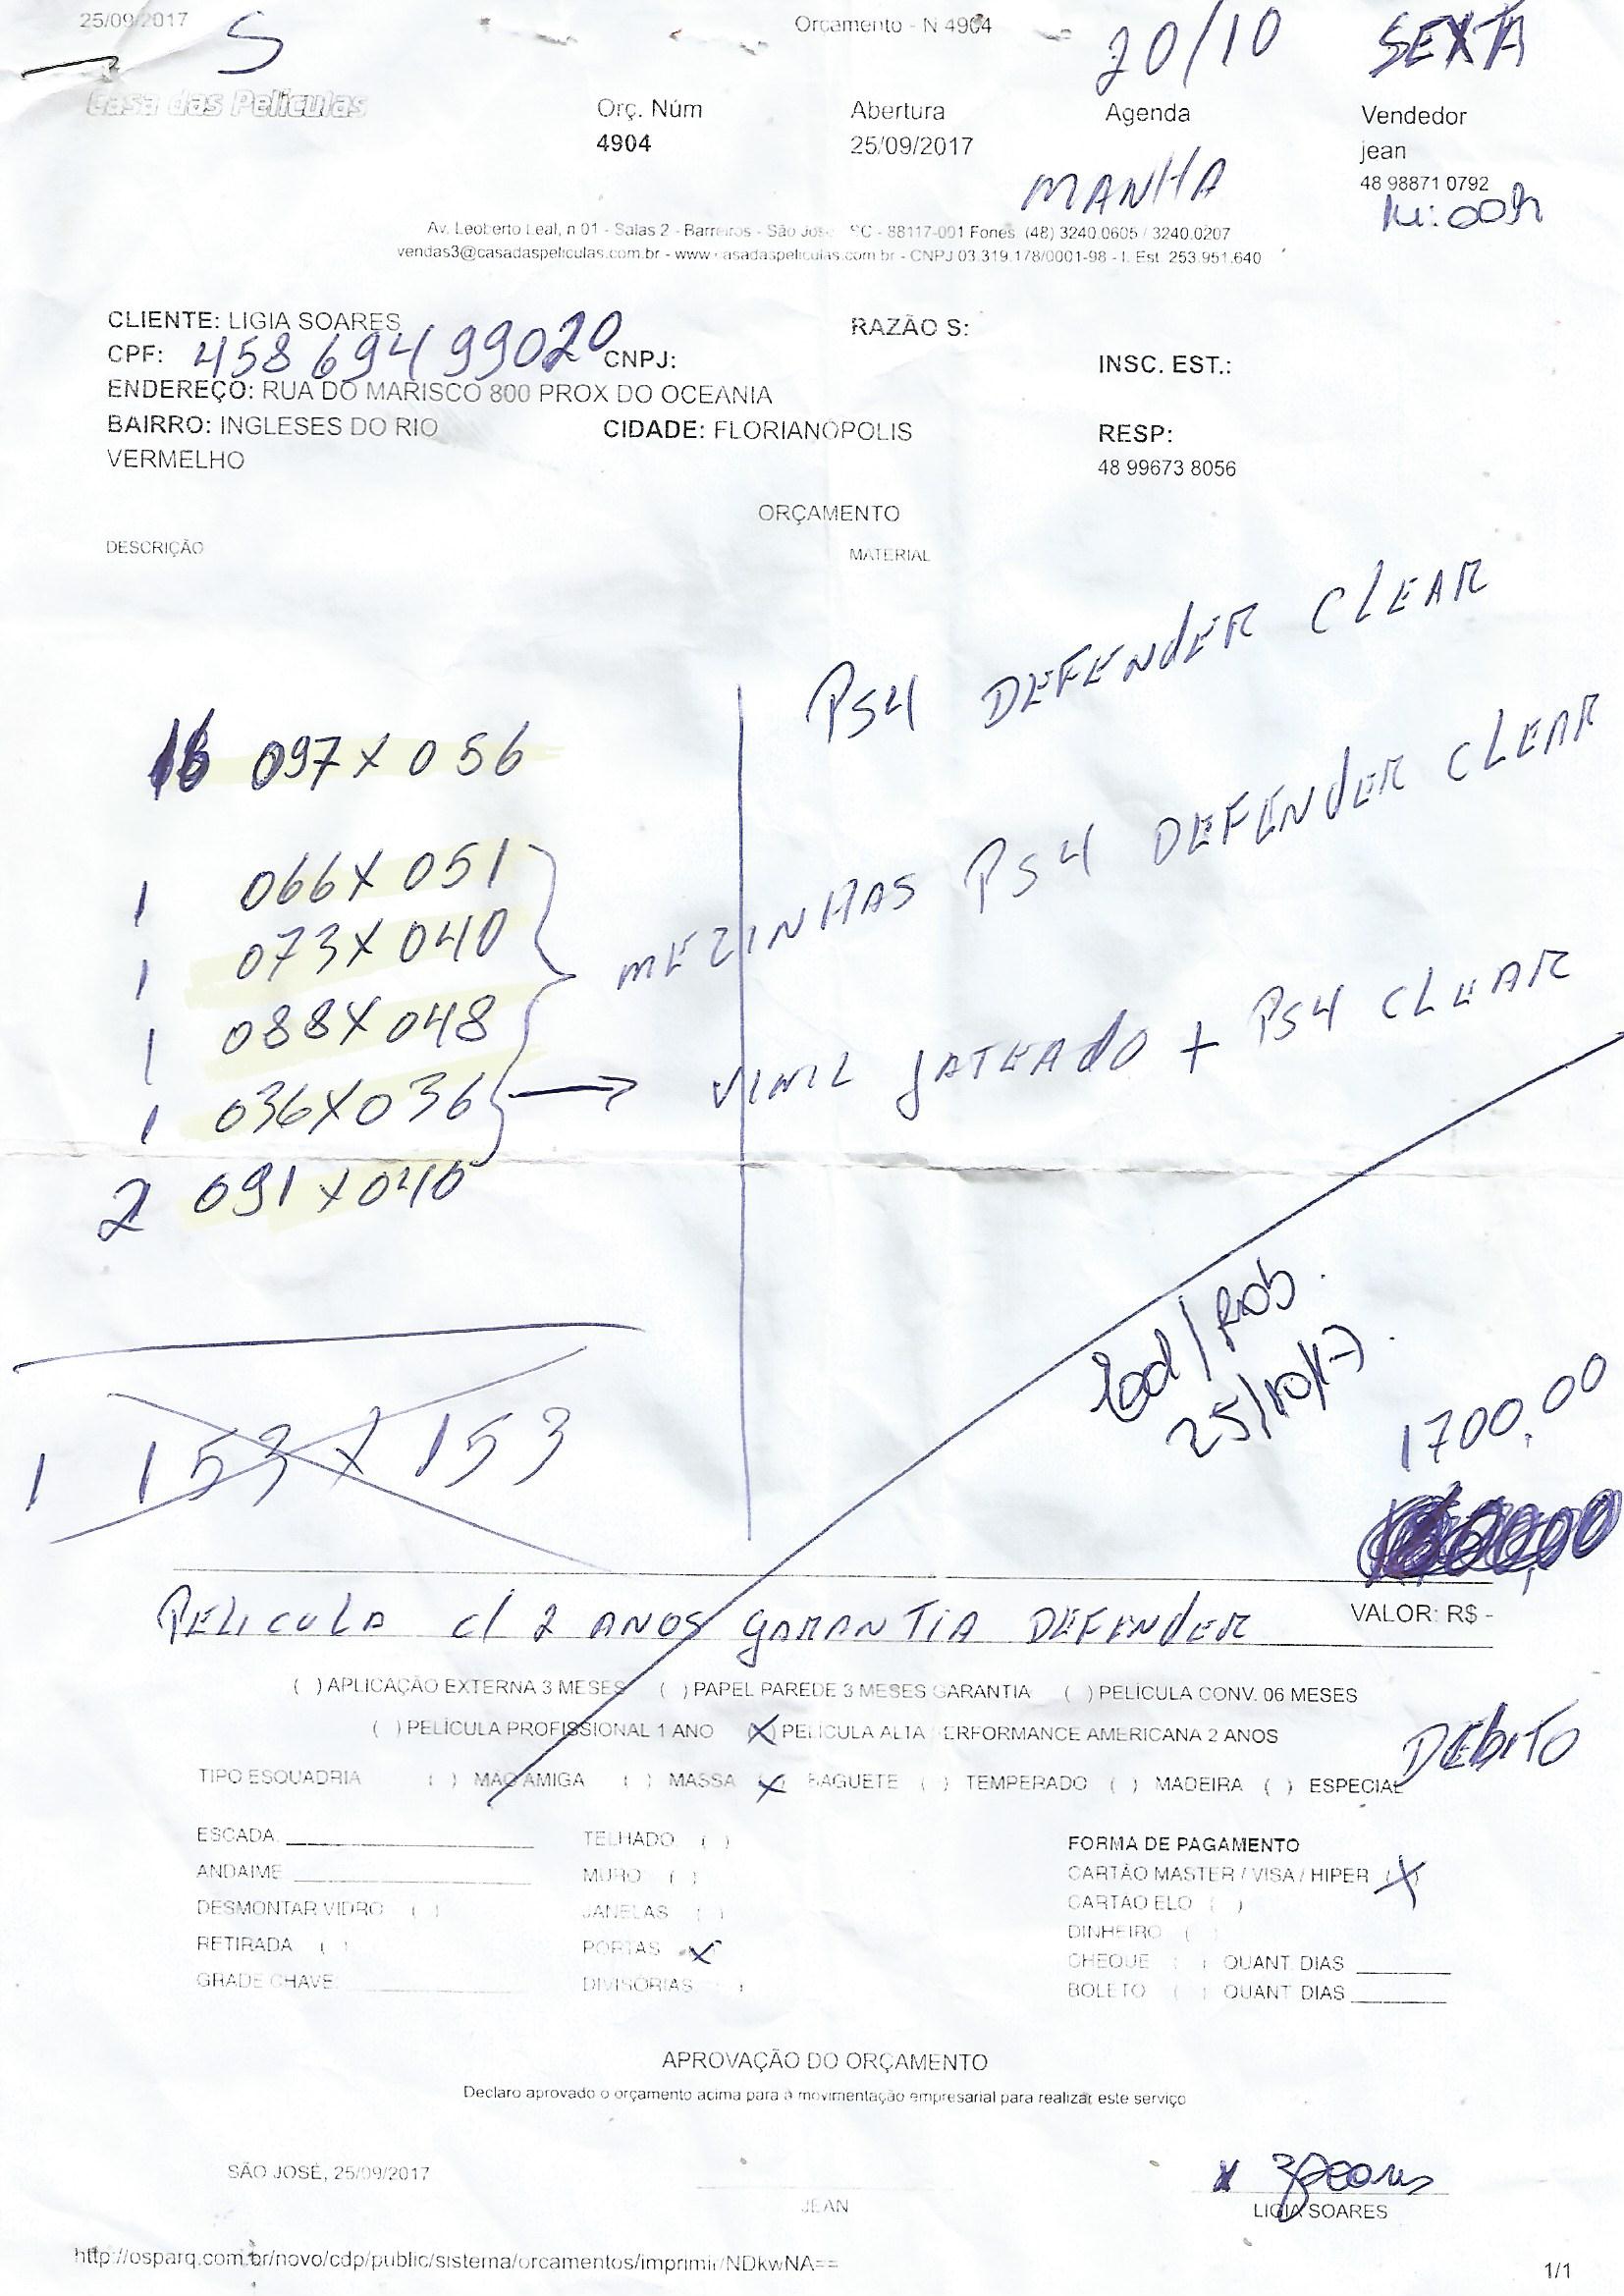 25/09/2017 Orcamento - N 4904
S 20/10 SEXTA
Casa das Películas Orç. Núm Abertura Agenda Vendedor
4904 25/09/2017 jean
MANHA 48 98871 0792
Av. Leoberto Leal, n 01 - Salas 2 - Barreiros - São José SC - 88117-001 Fones. (48) 3240.0605 / 3240.0207
vendas3@casadaspeliculas.com.br - www casadaspeliculas.com.br - CNPJ 03.319.178/0001-98 - I. Est. 253.951.640
CLIENTE: LIGIA SOARES RAZÃO S:
CPF: 458 694 99020 CNPJ: INSC. EST.:
ENDEREÇO: RUA DO MARISCO 800 PROX DO OCEANIA
BAIRRO: INGLESES DO RIO CIDADE: FLORIANOPOLIS RESP:
VERMELHO 48 99673 8056
ORÇAMENTO
DESCRIÇÃO MATERIAL
PS4 DEFENDER CLEAR
16 097 X 056
1 066 X 051
1 073 X 040
MEZINHAS PS4 DEFENDER CLEAR
1 088 X 048
1 036 X 036 VINIL JATEADO + PS4 CLEAR
2 091 X 040
25/10/17
1 153 X 153 1700,00
PELICULA c/ 2 ANOS GARANTIA DEFENDER VALOR: R$ -
( ) APLICAÇÃO EXTERNA 3 MESES ( ) PAPEL PAREDE 3 MESES GARANTIA ( ) PELÍCULA CONV. 06 MESES
( ) PELÍCULA PROFISSIONAL 1 ANO (X) PELICULA ALTA PERFORMANCE AMERICANA 2 ANOS
DEBITO
TIPO ESQUADRIA ( ) MÃO AMIGA ( ) MASSA (X) BAGUETE ( ) TEMPERADO ( ) MADEIRA ( ) ESPECIAL
ESCADA TELHADO ( ) FORMA DE PAGAMENTO
ANDAIME MURO ( ) CARTÃO MASTER / VISA / HIPER (X)
DESMONTAR VIDRO ( ) JANELAS ( ) CARTÃO ELO ( )
RETIRADA ( ) PORTAS (X) DINHEIRO ( )
GRADE CHAVE DIVISÓRIAS ( ) CHEQUE ( ) QUANT. DIAS
BOLETO ( ) QUANT DIAS
APROVAÇÃO DO ORÇAMENTO
Declaro aprovado o orçamento acima para a movimentação empresarial para realizar este serviço
SÃO JOSÉ, 25/09/2017
JEAN LIGIA SOARES
http://osparq.com.br/novo/cdp/public/sistema/orcamentos/imprimir/NDkwNA== 1/1